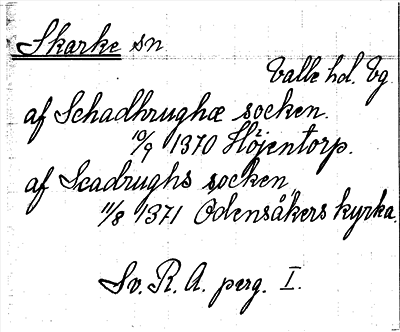 Skarke sn
Valle hd. Vg
af Schadhrughæ socken.
10/9 1370 Höjentorp.
af Scadrughs socken
11/8 1371 Odensåkers kyrka.
Sv. R. A. perg. I.